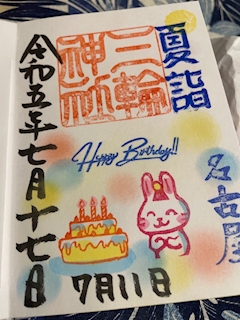 夏詣
三輪神社
Happy Birthday!!
名古屋
7月11日
令和五年七月十七日